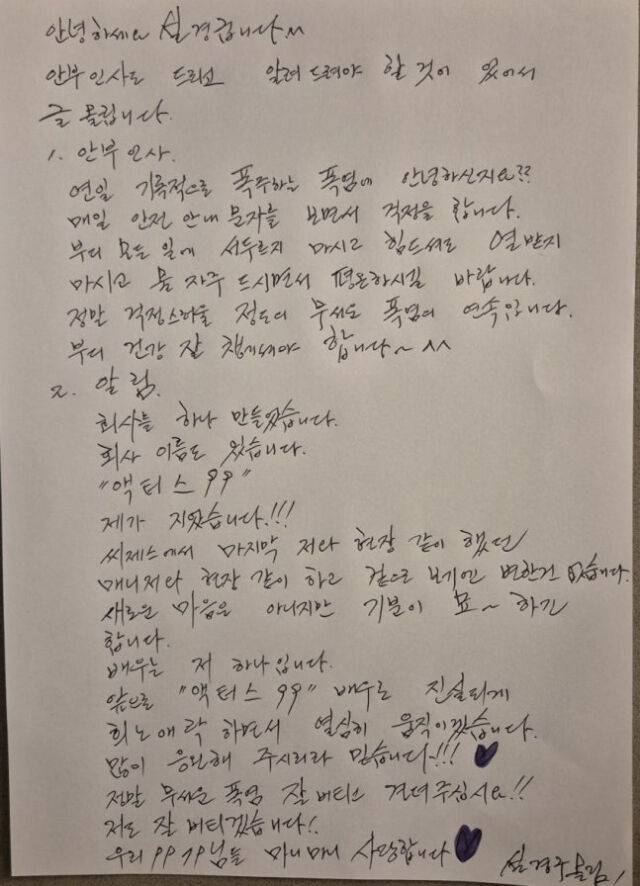 안녕하세요 설경굽니다^^
안부인사도 드리고 알려드려야 할 것이 있어서
글 올립니다.
1. 안부 인사.
연일 기록적으로 폭주하는 폭염에 안녕하신지요??
매일 안전 안내 문자를 보면서 걱정을 합니다.
부디 모든 일에 서두르지 마시고 힘드셔도 열받지
마시고 물 자주 드시면서 평온하시길 바랍니다.
정말 걱정스러울 정도의 무서운 폭염의 연속입니다.
부디 건강 잘 챙기셔야 합니다~ ^^
2. 알림.
회사를 하나 만들었습니다.
회사 이름도 있습니다.
"액터스99"
제가 지었습니다!!!
씨제스에서 마지막 저와 현장 같이 했던
매니저와 현장 같이 하고 겉으로 보기엔 변한건 없습니다.
새로운 마음은 아니지만 기분이 묘~하긴
합니다.
배우는 저 하나입니다.
앞으로 "액터스99" 배우로 진실되게
희노애락 하면서 열심히 움직이겠습니다.
많이 응원해 주시리라 믿습니다!!!
정말 무서운 폭염 잘 버티고 견뎌주십시요!!
저도 잘 버티겠습니다!
우리 99 가님들 마니마니 사랑합니다
설경구 올림